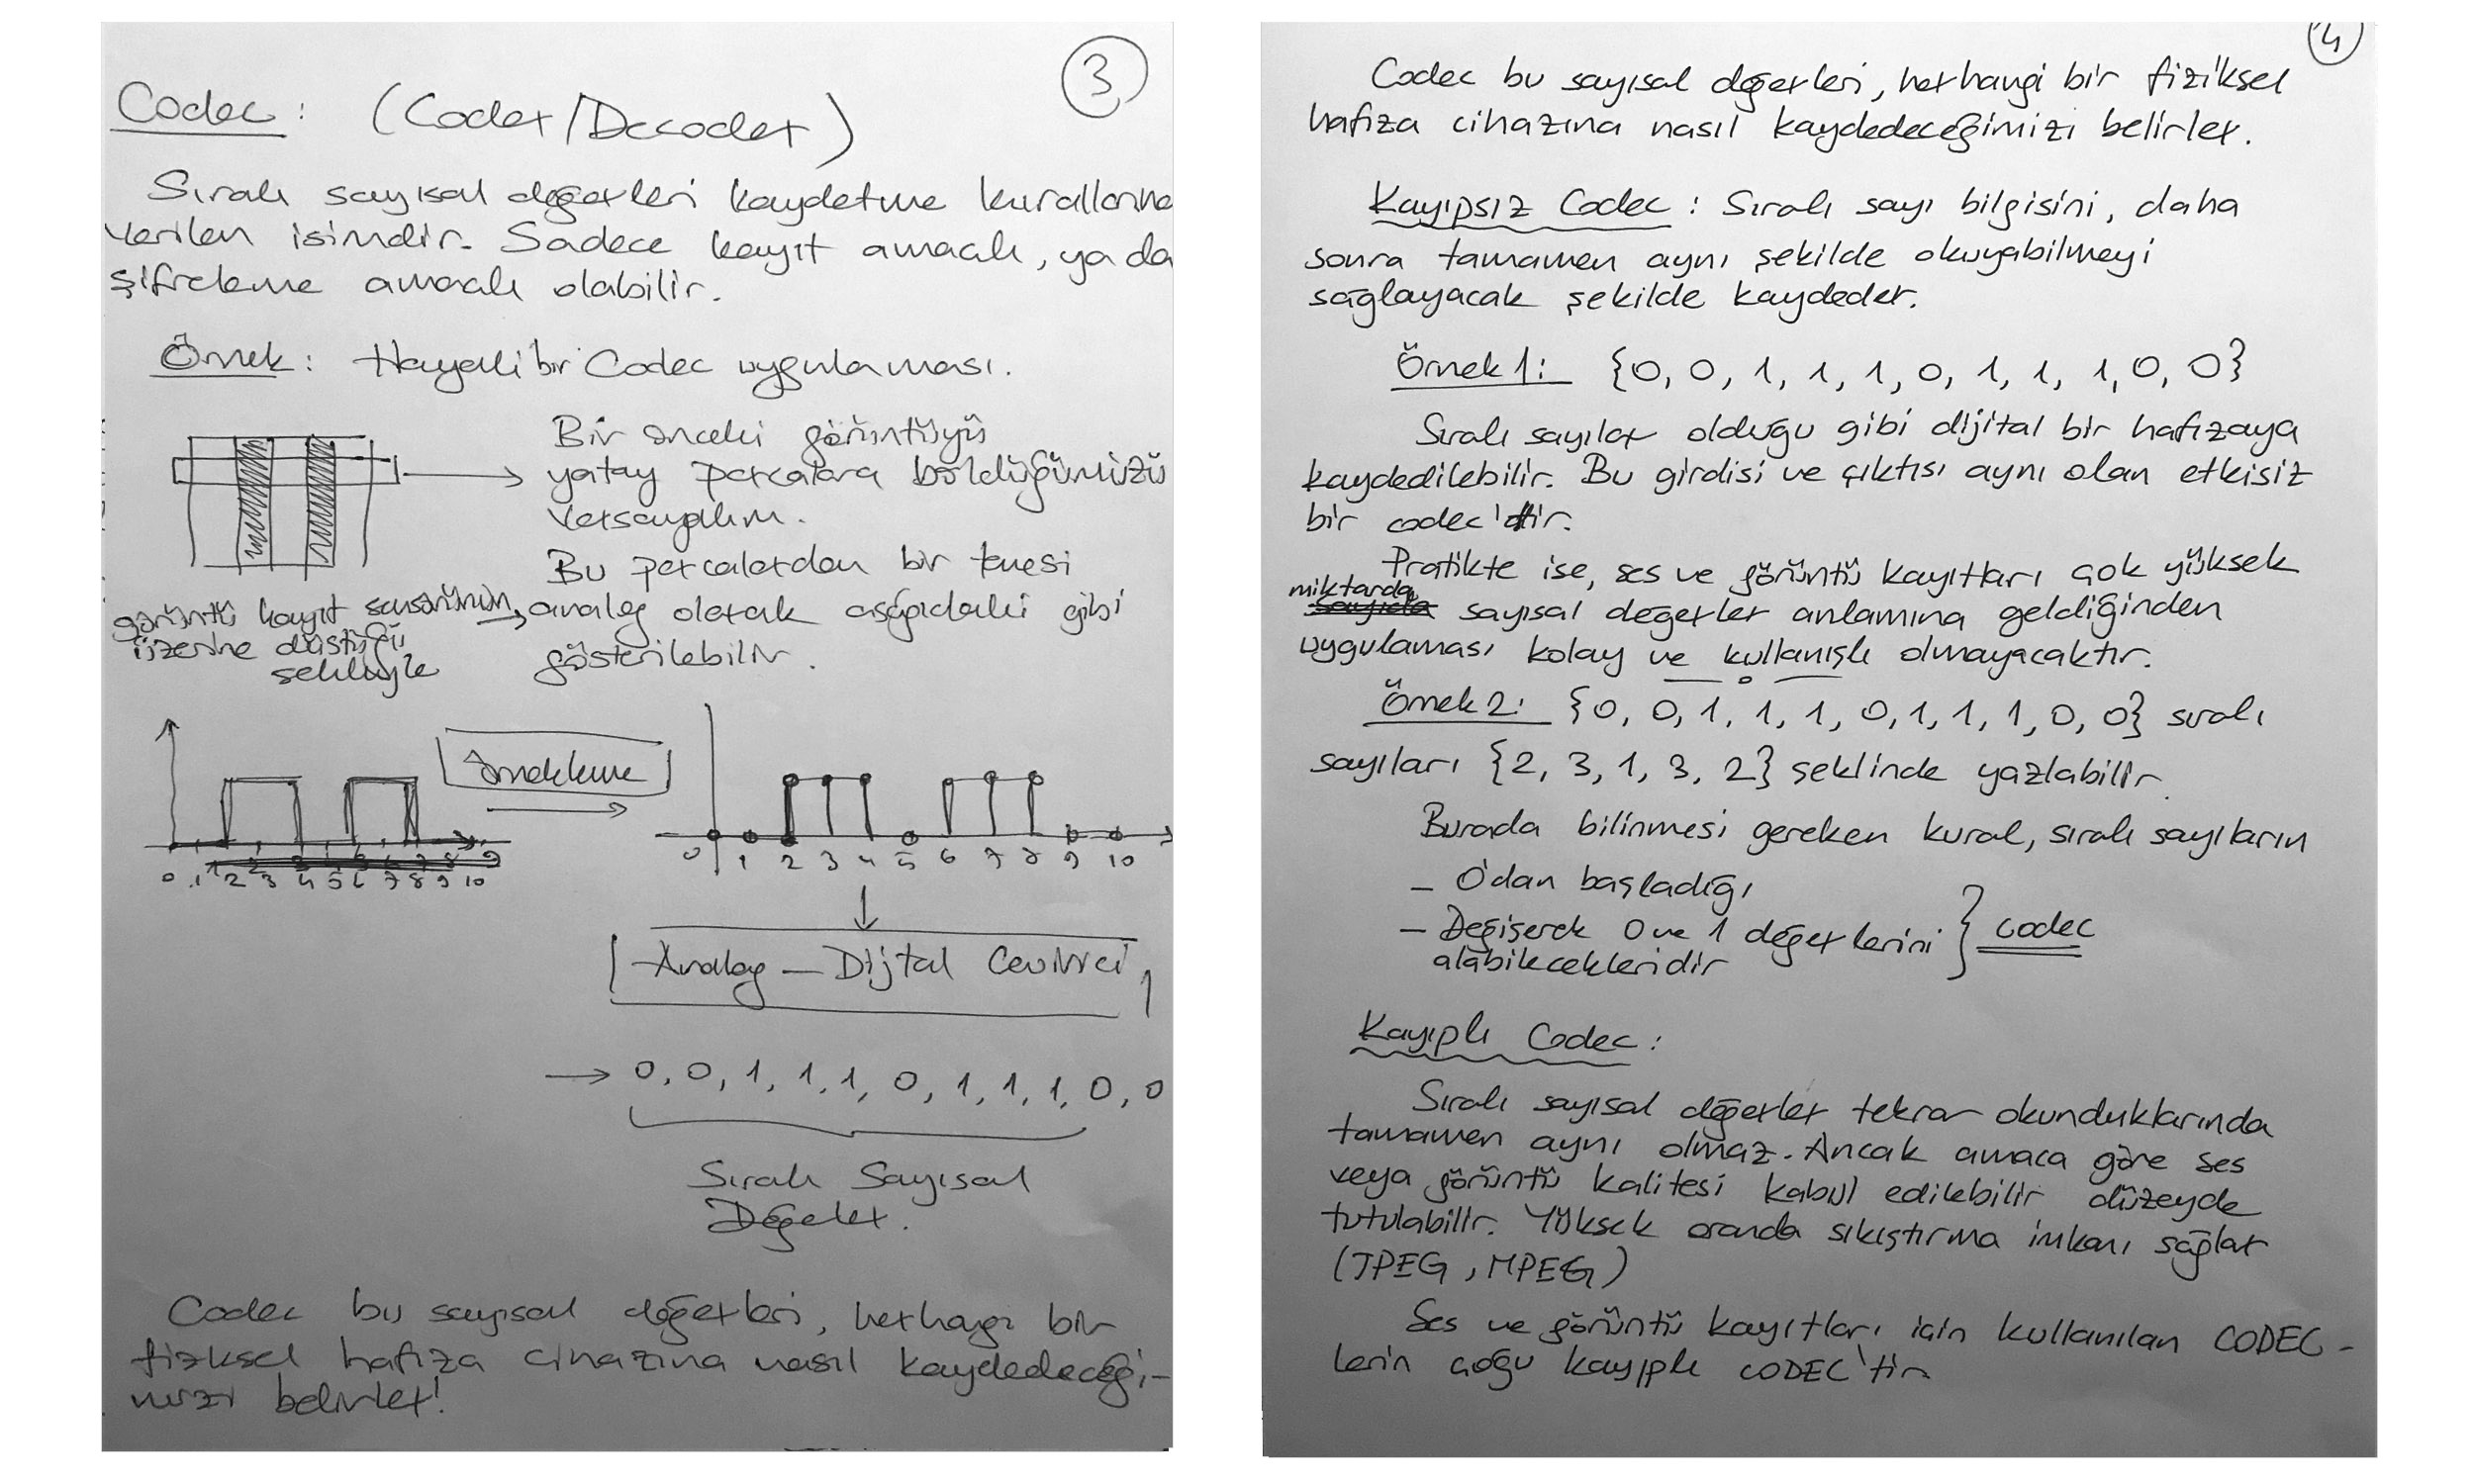 3
Codec : (Coder/Decoder)
Sıralı sayısal değerleri kaydetme kurallarına
verilen isimdir. Sadece kayıt amaçlı, ya da
şifreleme amaçlı olabilir.
Örnek : Hayali bir Codec uygulaması.
Bir önceki görüntüyü
yatay parçalara böldüğümüzü
varsayalım.
Bu parçalardan bir tanesi
analog olarak aşağıdaki gibi
gösterilebilir.
görüntü kayıt sensörünün
üzerine düştüğü
şekliyle
Örnekleme
0 1 2 3 4 5 6 7 8 9 10
0 1 2 3 4 5 6 7 8 9 10
Analog – Dijital Çevirici
→ 0, 0, 1, 1, 1, 0, 1, 1, 1, 0, 0
Sıralı Sayısal
Değerler.
Codec bu sayısal değerleri, herhangi bir
fiziksel hafıza cihazına nasıl kaydedeceği-
mizi belirler!
4
Codec bu sayısal değerleri, herhangi bir fiziksel
hafıza cihazına nasıl kaydedeceğimizi belirler.
Kayıpsız Codec : Sıralı sayı bilgisini, daha
sonra tamamen aynı şekilde okuyabilmeyi
sağlayacak şekilde kaydeder.
Örnek 1: {0, 0, 1, 1, 1, 0, 1, 1, 1, 0, 0}
Sıralı sayılar olduğu gibi dijital bir hafızaya
kaydedilebilir. Bu girdisi ve çıktısı aynı olan etkisiz
bir codec'tir.
Pratikte ise, ses ve görüntü kayıtları çok yüksek
miktarda sayısal değerler anlamına geldiğinden
uygulaması kolay ve kullanışlı olmayacaktır.
Örnek 2: {0, 0, 1, 1, 1, 0, 1, 1, 1, 0, 0} sıralı
sayıları {2, 3, 1, 3, 2} şeklinde yazlabilir.
Burada bilinmesi gereken kural, sıralı sayıların
– 0'dan başladığı
– Değişerek 0 ve 1 değerlerini } codec
alabilecekleridir
Kayıplı Codec :
Sıralı sayısal değerler tekrar okunduklarında
tamamen aynı olmaz. Ancak amaca göre ses
veya görüntü kalitesi kabul edilebilir düzeyde
tutulabilir. Yüksek oranda sıkıştırma imkanı sağlar
(JPEG, MPEG)
Ses ve görüntü kayıtları için kullanılan CODEC-
lerin çoğu kayıplı CODEC'tir